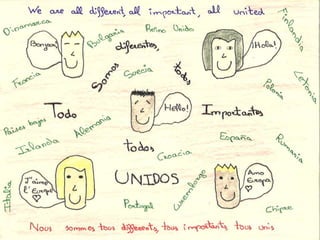 We are all different, all important, all united
Dinamarca
Bulgaria
Reino Unido
Finlandia
Bonjour
diferentes,
¡Hola!
Francia
Somos
Suecia
todos
Polonia
Letonia
Todo
Alemania
Hello!
Importantes
Países bajos
Islandia
todos
España
Rumania
Croacia
J'aime
l'Europe
UNIDOS
Amo
Europa
Italia
Portugal
Luxemburgo
Chipre
Nous sommes tous différents, tous importants, tous unis